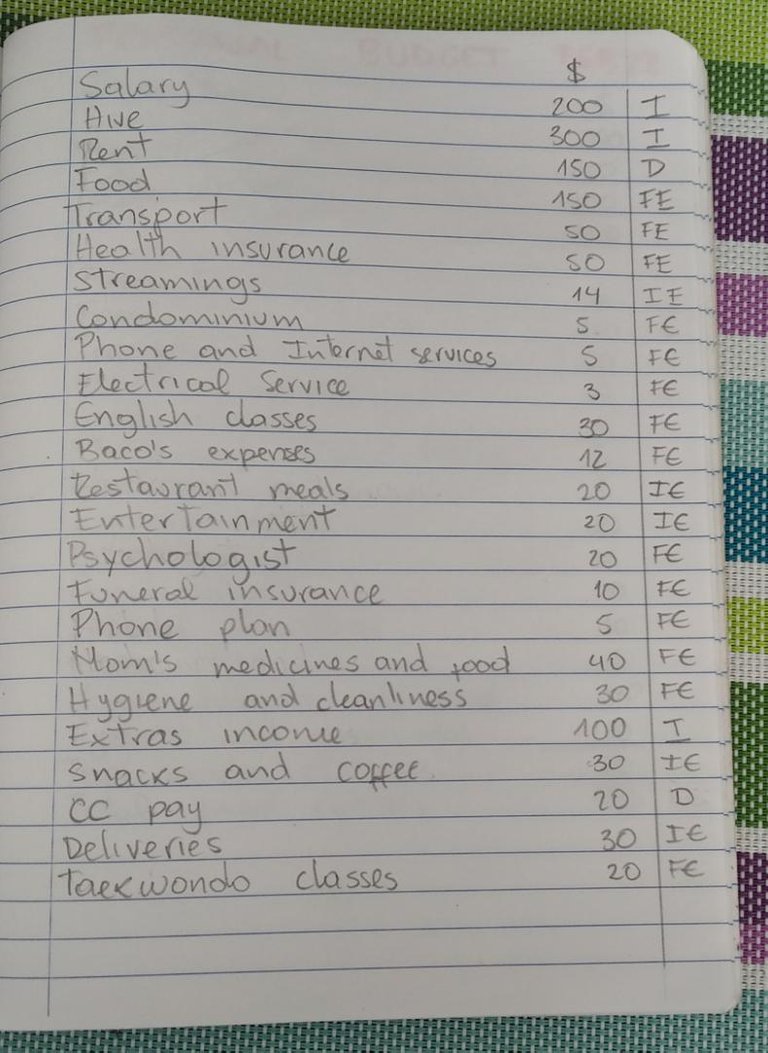 $
Salary 200 I
Hive 300 I
Rent 150 D
Food 150 FE
Transport 50 FE
Health insurance 50 FE
Streamings 14 IE
Condominium 5 FE
Phone and Internet services 5 FE
Electrical Service 3 FE
English classes 30 FE
Baco's expenses 12 FE
Restaurant meals 20 IE
Entertainment 20 IE
Psychologist 20 FE
Funeral insurance 10 FE
Phone plan 5 FE
Mom's medicines and food 40 FE
Hygiene and cleanliness 30 FE
Extras income 100 I
Snacks and coffee 30 IE
CC pay 20 D
Deliveries 30 IE
Taekwondo classes 20 FE